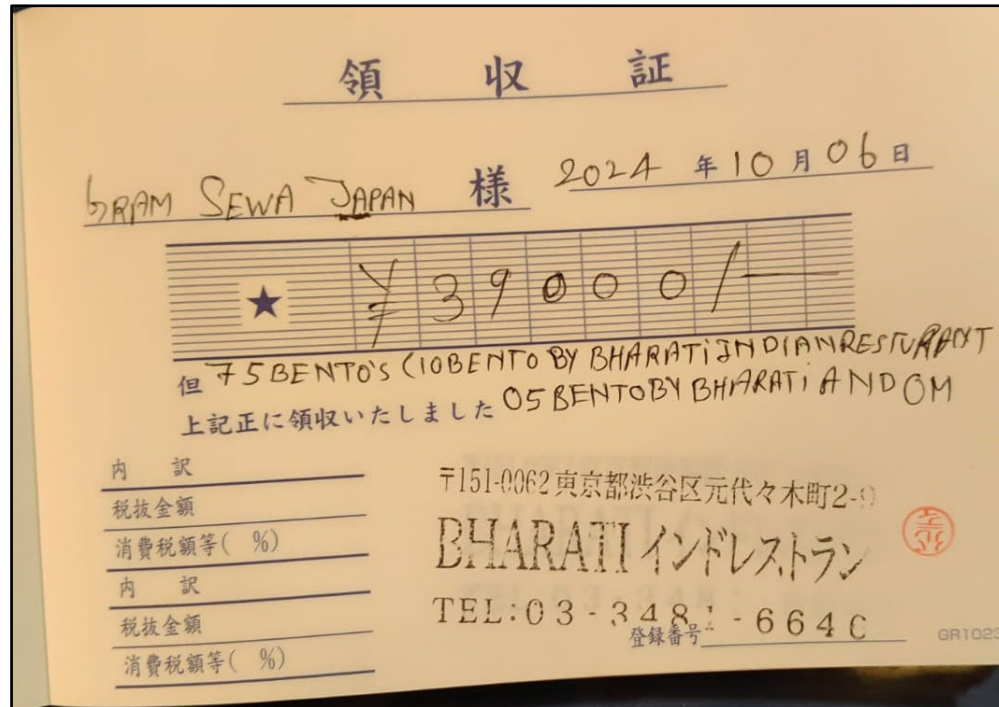 領 収 証
GRAM SEWA JAPAN 様 2024 年 10 月 06 日
★ ¥ 39000/—
但 75 BENTO'S (10 BENTO BY BHARATI INDIAN RESTURANT
上記正に領収いたしました 05 BENTO BY BHARATI AND OM
内 訳
税抜金額
消費税額等( %)
内 訳
税抜金額
消費税額等( %)
〒151-0062 東京都渋谷区元代々木町2-
BHARATI インドレストラン
TEL:03-3481-6640
登録番号
GR1023